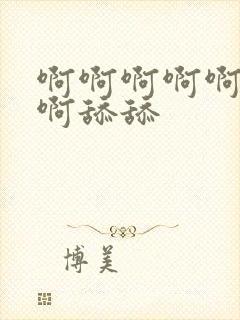 啊啊啊啊啊
啊舔舔
博美